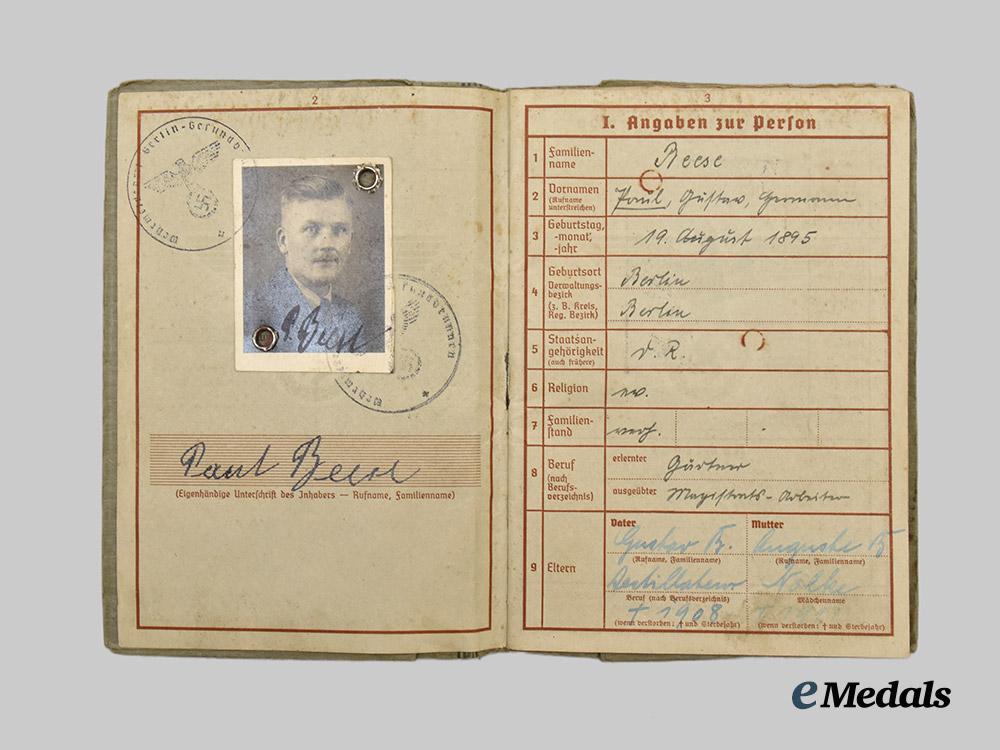 2
Berlin-Gesundbrunnen
P. Beese
Paul Beese
(Eigenhändige Unterschrift des Inhabers — Rufname, Familienname)
3
I. Angaben zur Person
1 Familienname Beese
2 Vornamen (Rufname unterstreichen) Paul, Gustav, Hermann
3 Geburtstag, -monat, -jahr 19. August 1895
4 Geburtsort Verwaltungsbezirk (z. B. Kreis, Reg. Bezirk) Berlin
Berlin
5 Staatsangehörigkeit (auch frühere) D. R.
6 Religion ev.
7 Familienstand verh.
8 Beruf (nach Berufsverzeichnis) erlernter Gärtner
ausgeübter Magistrats-Arbeiter
9 Eltern
Vater Mutter
Gustav B. Auguste B
(Rufname, Familienname) (Rufname, Familienname)
Destillateur Nölke
Beruf (nach Berufsverzeichnis) Mädchenname
† 1908
(wenn verstorben: † und Sterbejahr) (wenn verstorben: † und Sterbejahr)
eMedals